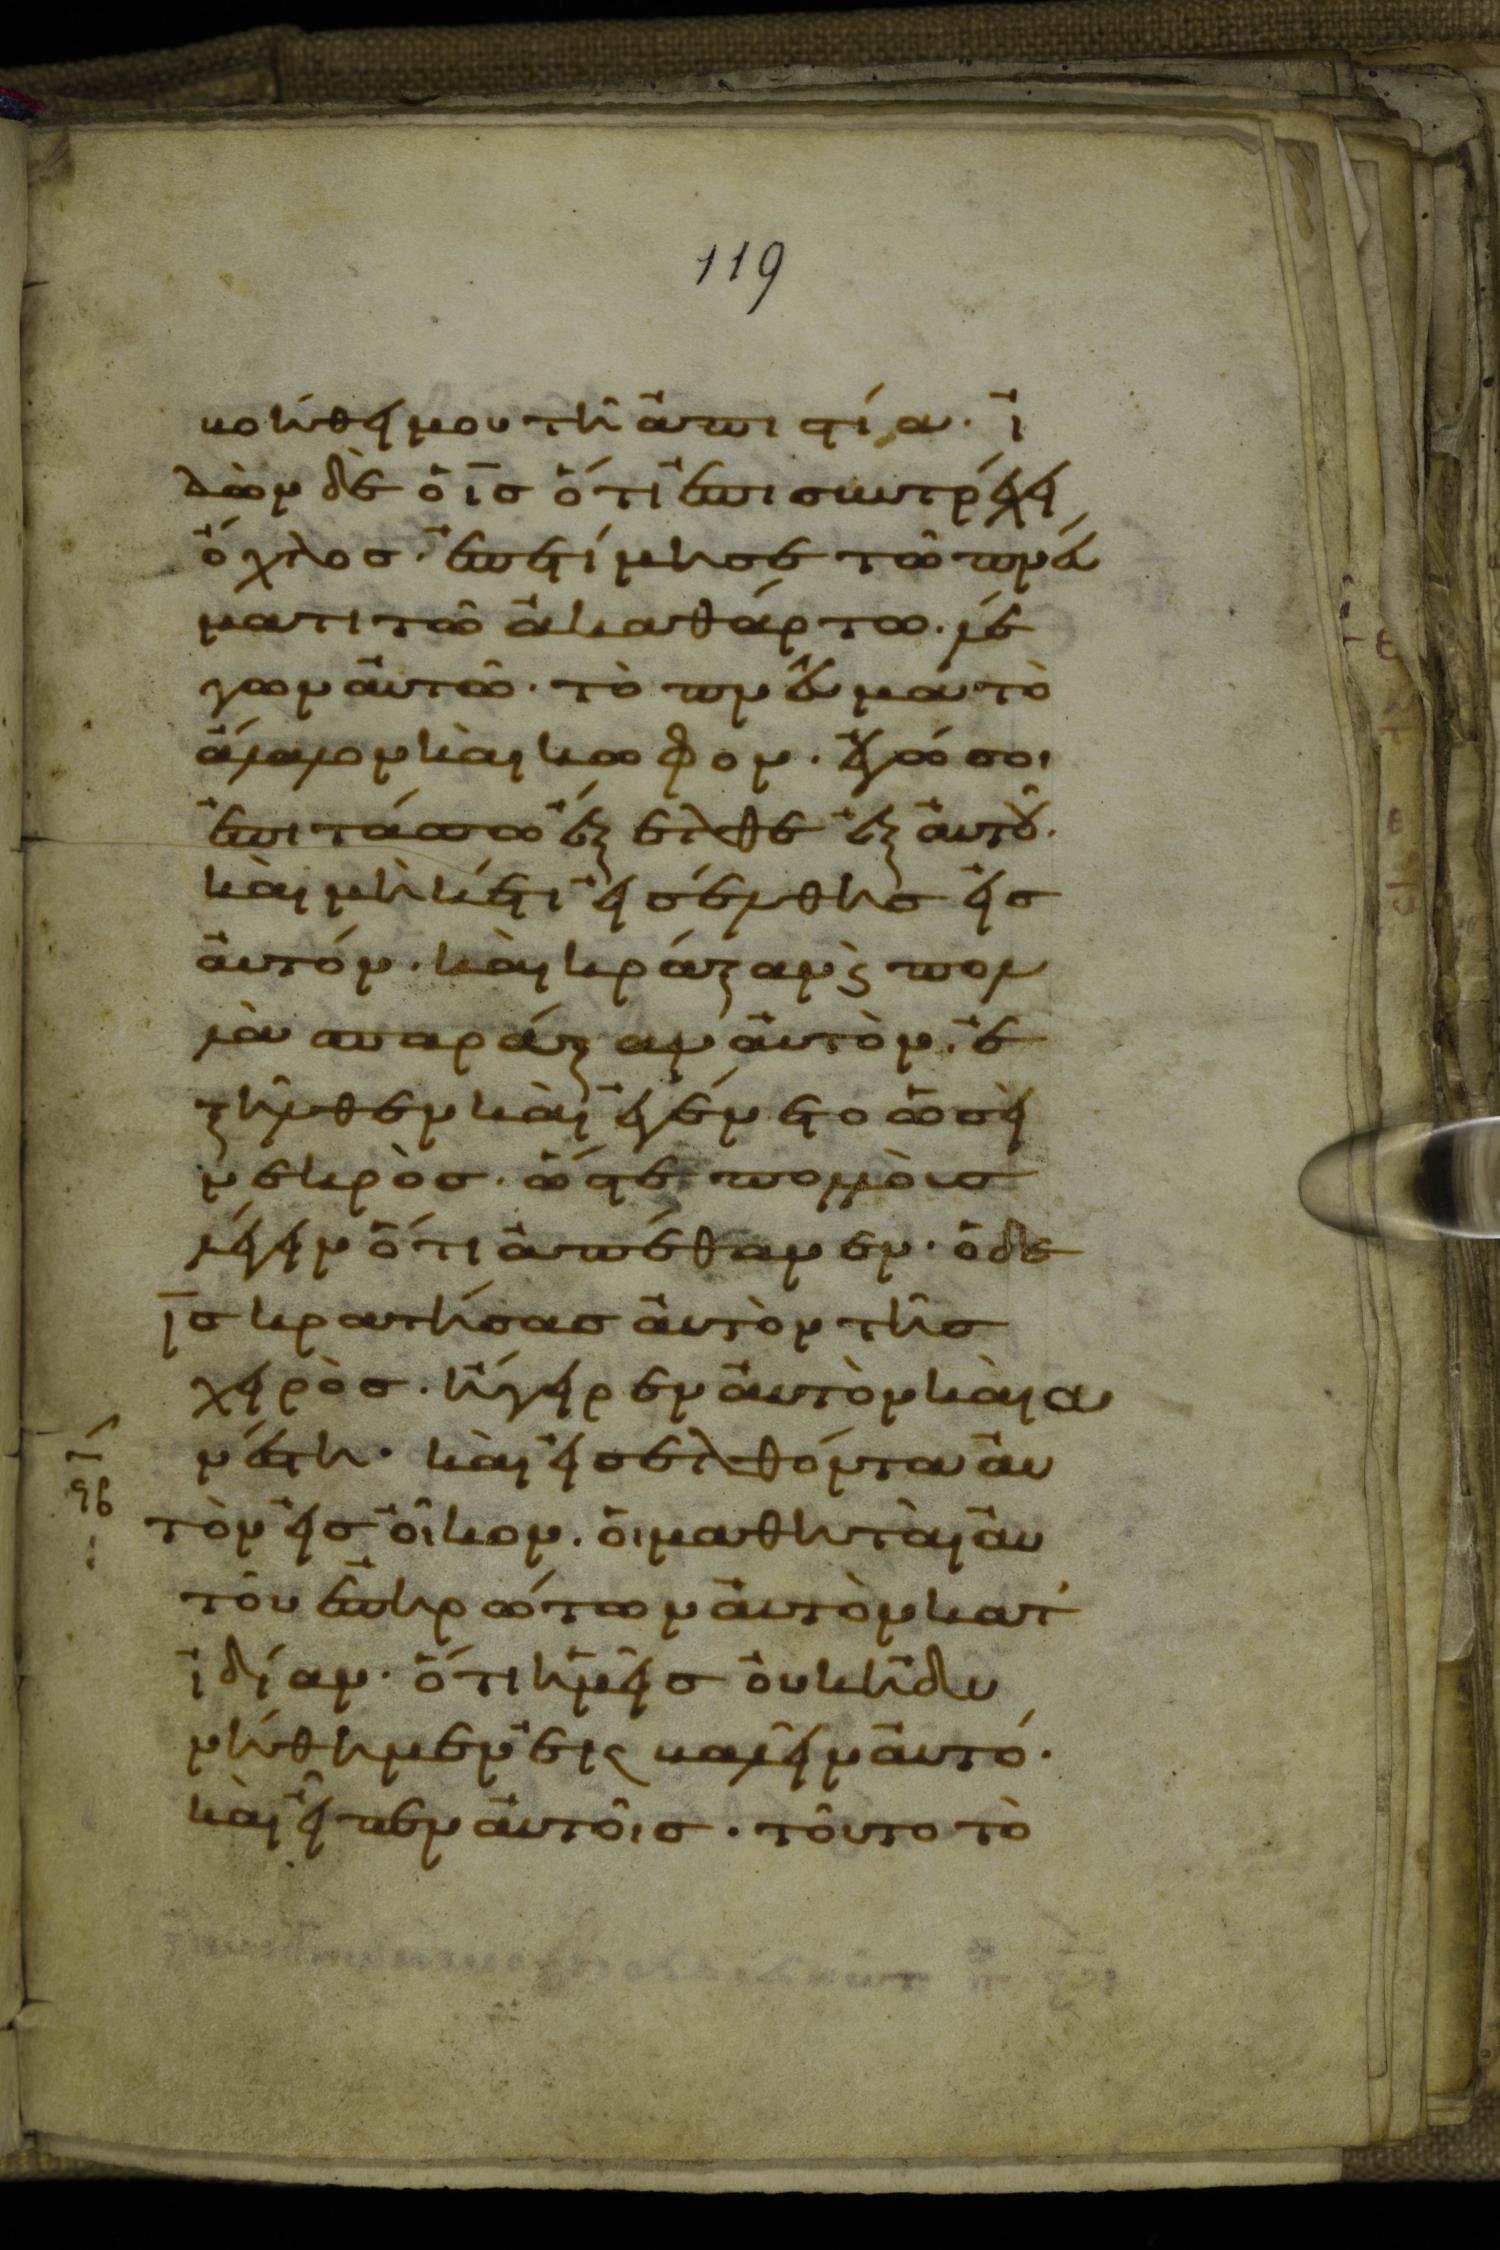 119
κοήθει μου τῆ ἀπιστία. ἰ
δὼν δὲ ὁ ις ὅτι ἐπισυντρέχει
ὄχλος. ἐπετίμησε τῶ πνεύ
ματι τῶ ἀκαθάρτω. λέ
γων αὐτῶ. τὸ πνεῦμα τὸ
ἄλαλον καὶ κωφὸν. ἐγώ σοι
ἐπιτάσσω ἔξελθε ἐξ αὐτοῦ.
καὶ μηκέτι εἰσέλθης εἰς
αὐτόν. καὶ κράξαν ϗ πολ
λὰ σπαράξαν αὐτὸν. ἐ
ξῆλθεν καὶ ἐγένετο ὡσεὶ
νεκρὸς. ὥστε πολλοὺς
λέγειν ὅτι ἀπέθανεν. ὁ δε
ις κρατήσας αὐτὸν τῆς
χειρὸς. ἤγειρεν αὐτὸν καὶ α
νέστη. καὶ εἰσελθόντα αὐ
τὸν εἰς οἶκον. οἱ μαθηταὶ αὐ
τοῦ ἐπηρώτων αὐτὸν κατ'
ἰδίαν. ὅτι ἡμεῖς οὐκ ἠδυ
νήθημεν ἐκβαλεῖν αὐτό.
καὶ εἶπεν αὐτοῖς. τοῦτο τὸ